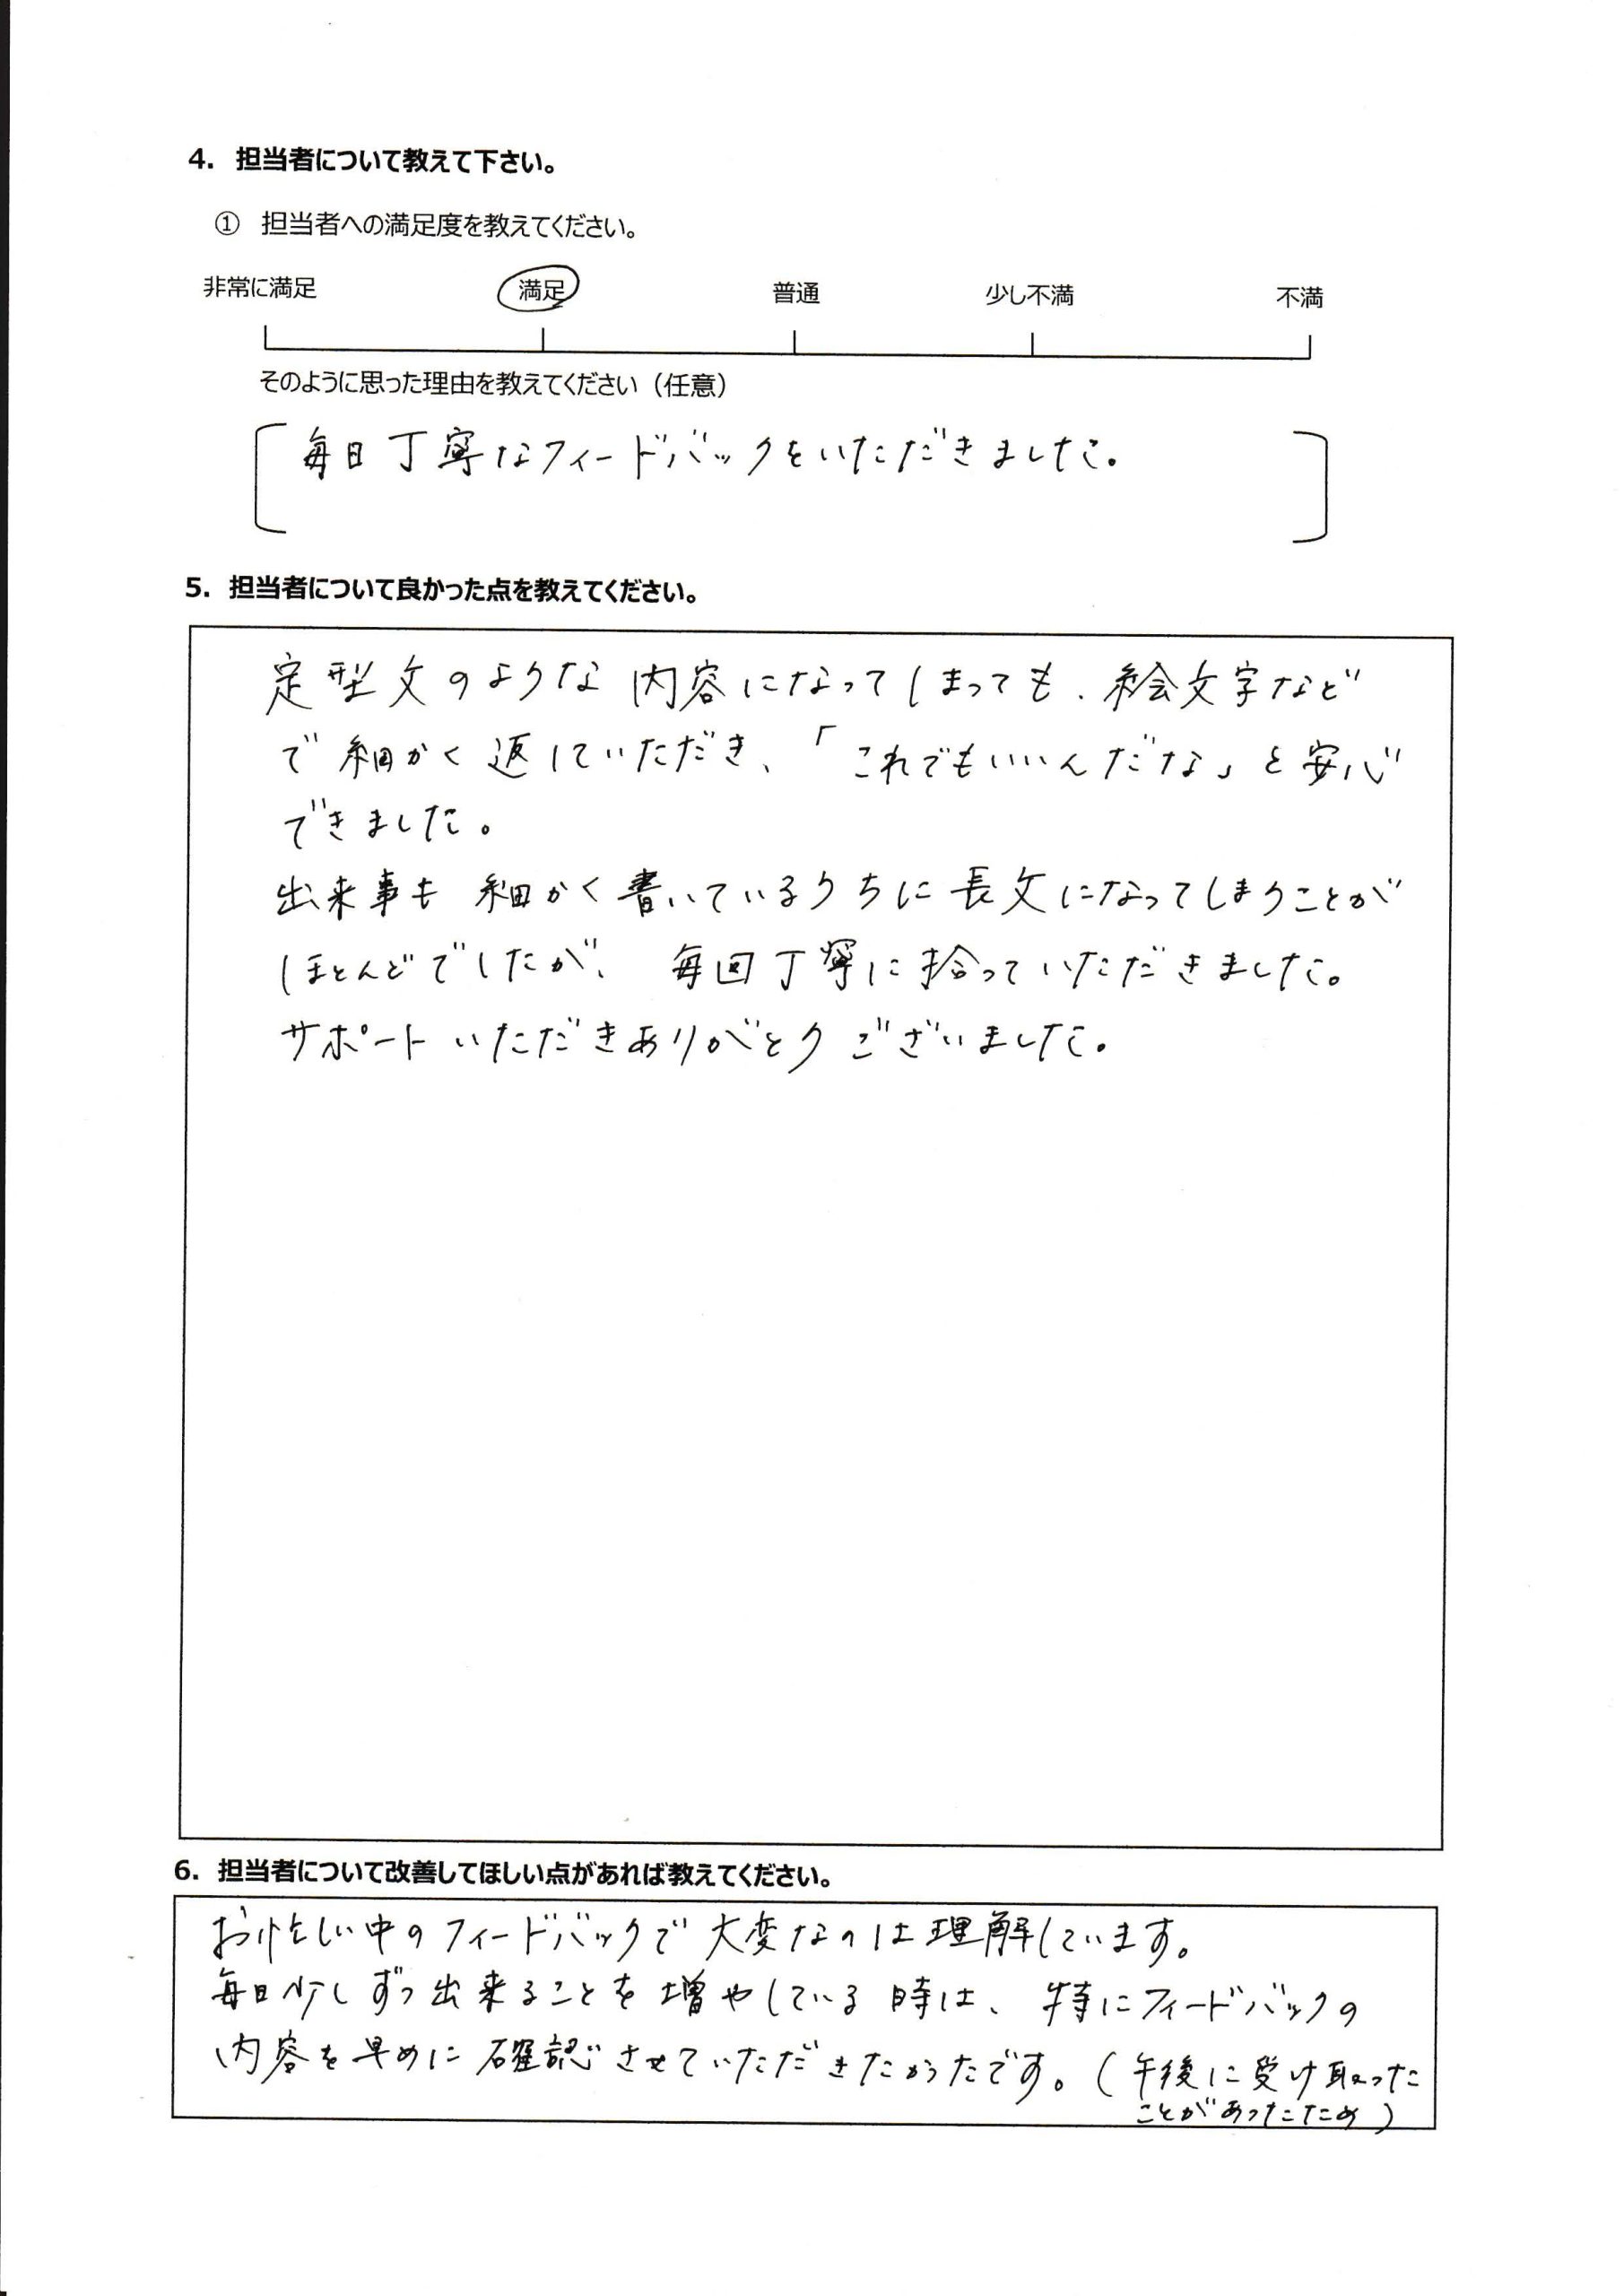 4. 担当者について教えて下さい。
① 担当者への満足度を教えてください。
非常に満足 満足 普通 少し不満 不満
そのように思った理由を教えてください（任意）
毎日丁寧なフィードバックをいただきました。
5. 担当者について良かった点を教えてください。
定型文のような内容になってしまっても、絵文字など
で細かく返していただき、「これでもいいんだな」と安心
できました。
出来事も細かく書いているうちに長文になってしまうことが
ほとんどでしたが、毎回丁寧に拾っていただきました。
サポートいただきありがとうございました。
6. 担当者について改善してほしい点があれば教えてください。
お忙しい中のフィードバックで大変なのは理解しています。
毎日少しずつ出来ることを増やしている時は、特にフィードバックの
内容を早めに確認させていただきたかったです。（午後に受け取った
ことがあったため）